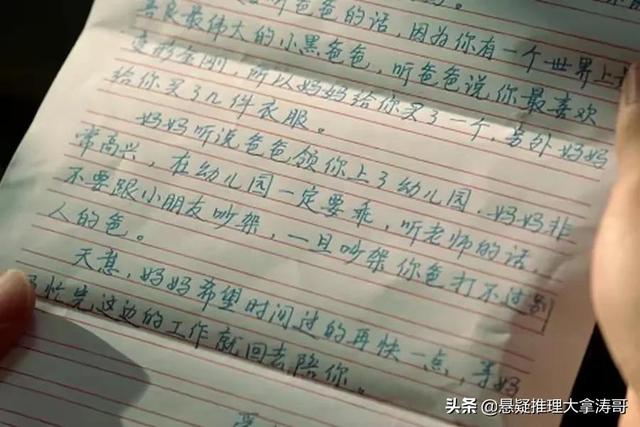 听爸爸的话，因为你有一个世界上
善良最伟大的小黑爸爸，听爸爸说你最喜欢
变形金刚，所以妈妈给你买了一个，另外妈妈
给你买了几件衣服。
妈妈听说爸爸领你上了幼儿园，妈妈非
常高兴，在幼儿园一定要乖，听老师的话，
不要跟小朋友吵架，一旦吵架你爸打不过别
人的爸。
天意，妈妈希望时间过的再快一点，等妈
忙完这边的工作就回去陪你。
头条 @悬疑推理大拿涛哥